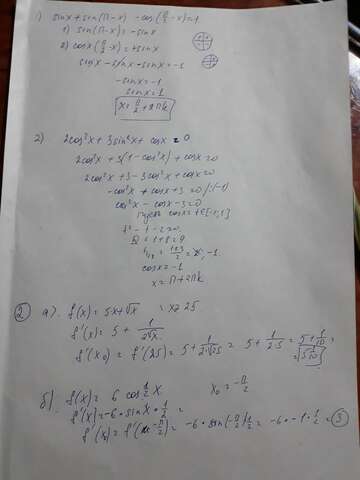 1) sinx + sin(π-x) - cos(π/2 - x) = 1
1) sin(π-x) = -sinx
2) cosx(π/2 - x) = +sinx
sinx - sinx + sinx = -1
-sinx = -1
sinx = 1
x = π/2 + 2πk
2) 2cos²x + 3sin²x + cosx = 0
2cos²x + 3(1 - cos²x) + cosx = 0
2cos²x + 3 - 3cos²x + cosx = 0
-cos²x + cosx + 3 = 0 /(-1)
cos²x - cosx - 3 = 0
Пусть cosx = t ∈ [-1;1]
t² - t - 2 = 0
D = 1 + 8 = 9
t₁,₂ = (1±3)/2 = 2, -1
cosx = -1
x = π + 2πk
2 а). f(x) = 5x + √x = x₀ = 25
f'(x) = 5 + 1/(2√x)
f'(x₀) = f'(25) = 5 + 1/(2·√25) = 5 + 1/(2·5) = 5 + 1/10 =
= 5 1/10
б) f(x) = 6 cos 1/2 x x₀ = -π/2
f'(x) = -6 · sinx · 1/2 =
f'(x₀) = f'(-π/2) = -6 · sin(-π/2) 1/2 = -6 · -1 · 1/2 = 3